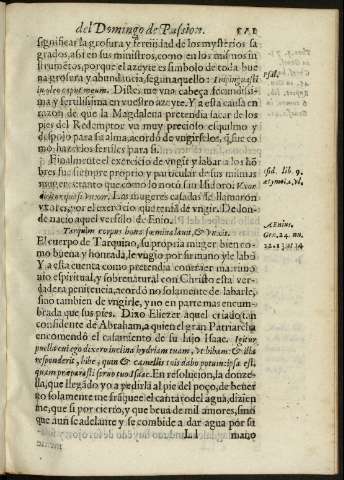 del Domingo de Passion.
significar la grosura y fertilidad de los mysterios sa
grados, assi en sus ministros, como en los mismos ins
trumētos, porque el azeyte es simbolo de toda bue
na grosura y abundancia, segun aquello: Impinguasti
in oleo caput meum. Distes me vna cabeça fecundissi-
ma y fertilissima en vuestro azeyte. Y a esta causa en
razon de que la Magdalena pretendia sacar de los
pies del Redemptor vn muy precioso esquilmo y
despojo para su alma, acordò de vngirselos, que fue co
mo hazerlos fertiles para si.
Finalmente el exercicio de vngir y labar a los hō
bres fue siempre proprio, y particular de sus mismas
mugeres tanto que como lo notò san Isidoro: Vxor
dicitur quasi vnxor. Las mugeres casadas se llamaron
vxores, por el exercicio que tenian de vngir. De don-
de nacio aquel versillo de Enio.
Tarquini corpus bona fœmina lauit, & vnxit.
El cuerpo de Tarquino, su propria muger bien co-
mo buena y honrada, le vngio por su mano y le labò
Y a esta cuenta como pretendia contraer matrimo
nio espiritual, y sobrenatural con Christo esta ver-
dadera penitencia, acordò no solamente de labarle,
sino tambien de vngirle, y no en parte mas encum-
brada que sus pies. Dixo Eliezer aquel criado tan
confidente de Abraham, a quien el gran Patriarcha
encomendò el casamiento de su hijo Isaac. Igitur
puella cui ego dixero inclina hydriam tuam, vt bibam: & illa
responderit, bibe, quin & camelis tuis dabo potum: ipsa est,
quam præparasti seruo tuo Isaac. En resolucion, la donze-
lla, que llegado yo a pedirla al pie del poço, de beuer
no solamente me frāquee el cantaro del agua, dizien
me, que si por cierto, y que beua de mil amores, sino
que aun se adelante y se combide a dar agua por su
Ll mano
Psal.
Isid. lib. 9.
etymo.
Æ Enius.
Gen. 24. nu.